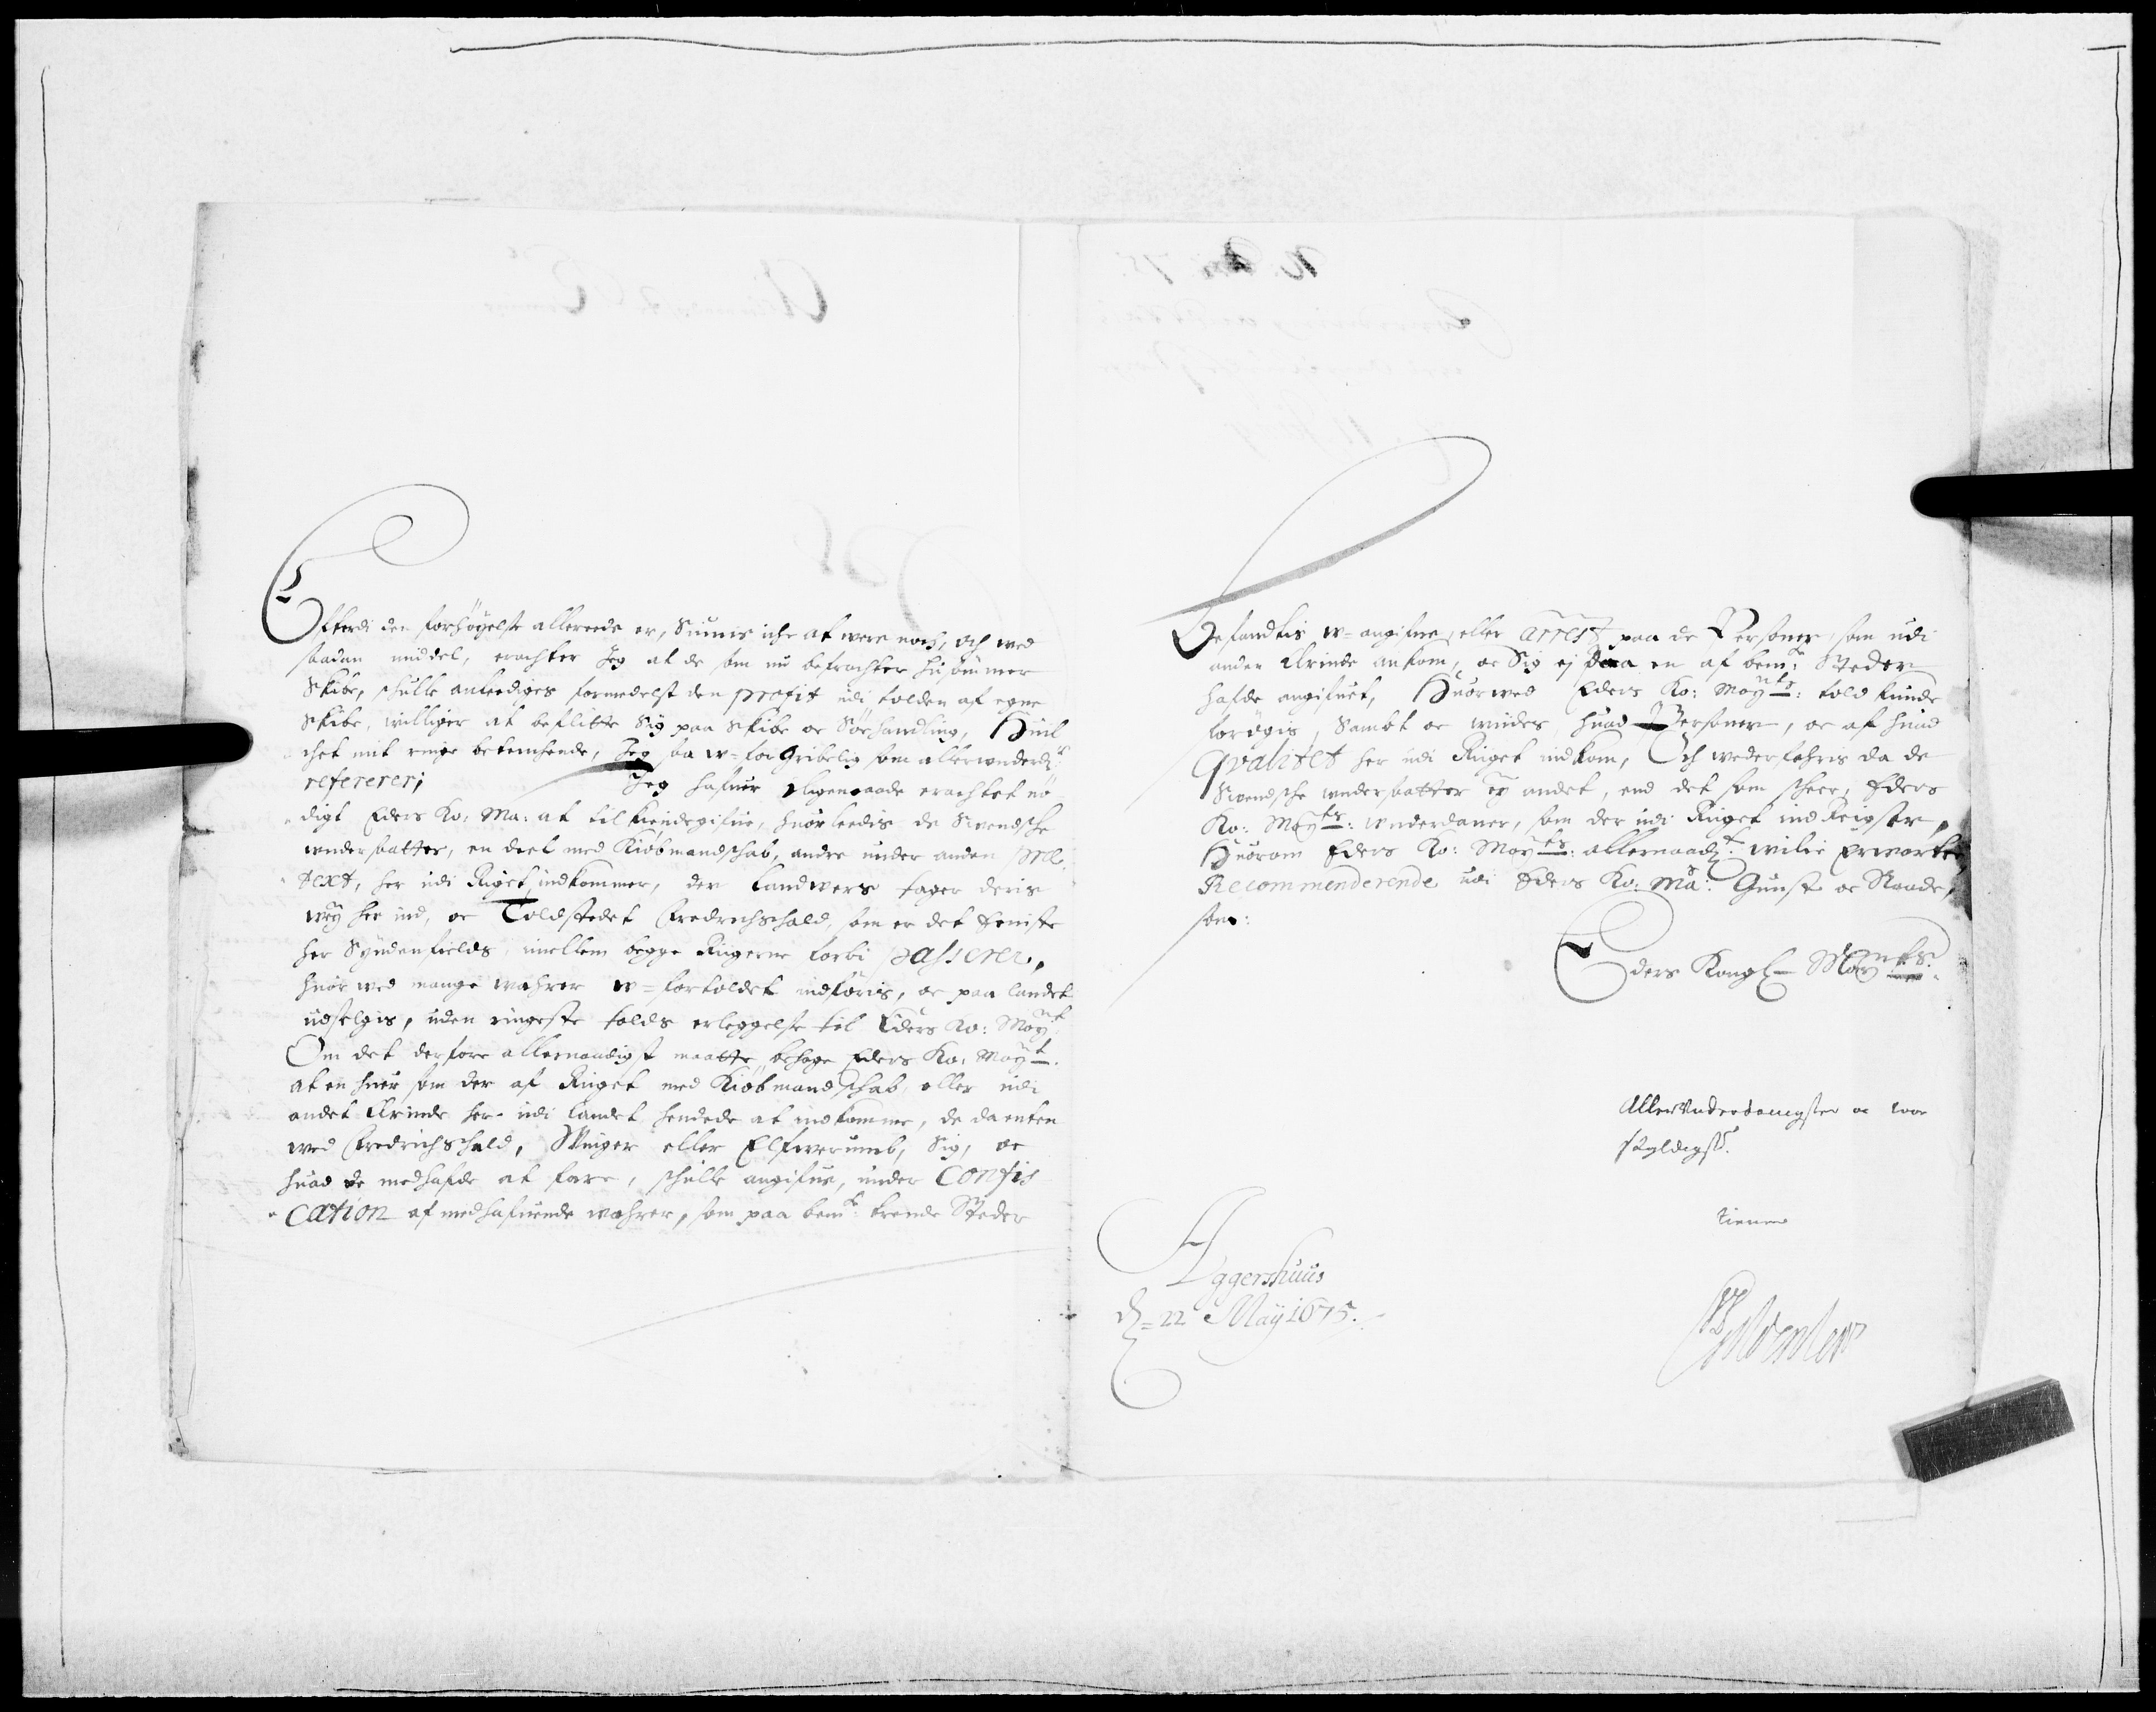 Efterdi den forhöyelse allereede er, Siunis iche at were noch, och ved
saadan middel, erachter Jeg at de som nu befrachter
Skibe, schulle anleediges formedelst den profit udi tolden af egne
Skibe, williger at beflitte Sig paa Skibe oc Söehandling, Huil
chet mit ringe betenchende, Jeg saa w=for Gribelig som allerunderdⁿ
refererer;
Jeg hafuer Ligeruaade erachtet nö
digt Eders Ko: Ma: at tilkiendegifue, huorleedis de Svendsche
undersatter, en deel med Kiöbmandschab, andre under anden præ
text, her udi Riget indkommer, der Landwers tager deris
wey her ind, oc Toldstedet Fredrichshald, som er det eeniste
her Syndenfields, imellem begge Rigerne forbi passerer,
huor ved mange wahrer w=fortoldet indföris, oc paa landet
udselgis, uden ringeste tolds erleggelse til Eders Ko: Mayᵗ
Om det derfore allernaadigst maatte behage Eders Ko: Mayᵗ.
at en huer som der af Riget med Kiöbmandschab eller udi
andet Erinde her udi Landet hendede at indkomme, de da enten
ved Fredrichshald, Winger eller Elfwerumb, Sig, oc
huad de medhafde at fare, schulle angifue, under Confis
cation af medhafuende wahrer, som paa bemᵗᵉ trende Steder
Befandtis w=angifne, eller arrest paa de Personer, som udi
anden Erinde ankom, oc Sig ej paa en af bemᵗᵉ Steder
hafde angifuet, Huorved Eders Ko: Mayᵗˢ: told kunde
forögis, Sambt oc widis huad Personer, oc af huad
Qvalitet her udi Riget indkom, Och wederfahris da de
Svendsche undersatter ey andet, end det som scheer, Eders
Ko: Mayᵗˢ: Underdaner, som der udi Riget ind Reigser,
Huorom Eders Ko: Mayᵗˢ: allernaadᵗᵉ wilie erwarter
Recommenderende udi Eders Ko: Ma: Gunst oc Naade,
som:
Eders Kongl Mayᵗˢ.
Allerunderdanigster oc
schyldigst
tiener
Aggershuus
d= 22 May 1675.
Gyldenlew